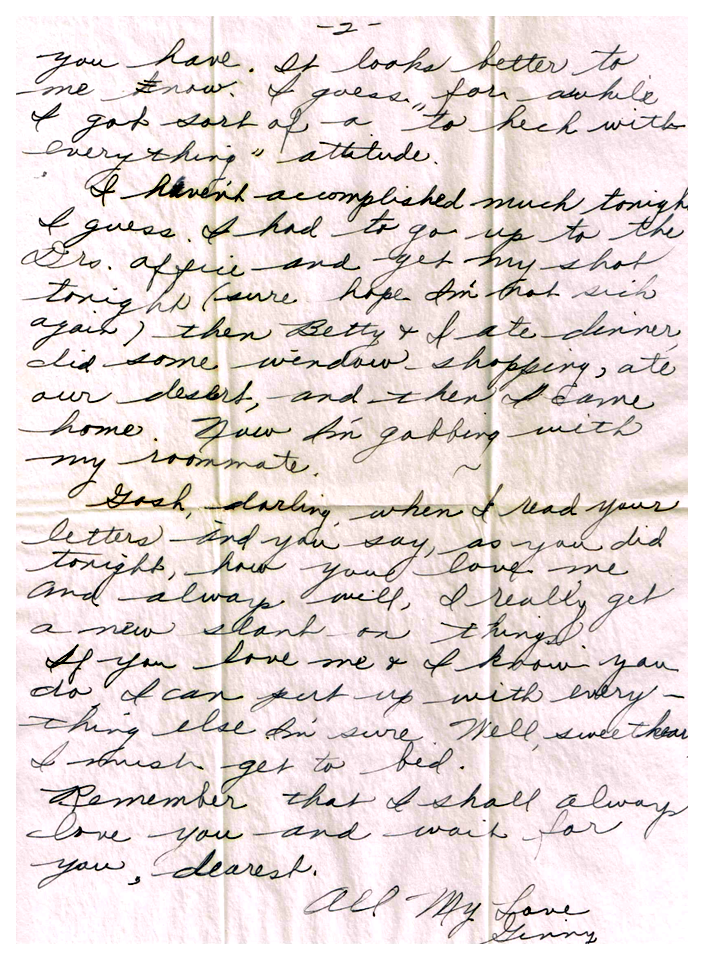 -2-
you have. It looks better to
me know. I guess, for awhile
I got sort of a "to heck with
everything" attitude.
I haven't accomplished much tonight
I guess. I had to go up to the
Drs. office and get my shot
tonight (sure hope I'm not sick
again) then Betty & I ate dinner,
did some window-shopping, ate
our desert, and then I came
home. Now I'm gabbing with
my roommate.
Gosh, darling, when I read your
letters and you say, as you did
tonight, how you love me
and always will, I really get
a new slant on things.
If you love me & I know you
do, I can put up with every-
thing else I'm sure. Well, sweetheart
I must get to bed.
Remember that I shall always
love you and wait for
you, dearest.
All My Love
Ginny